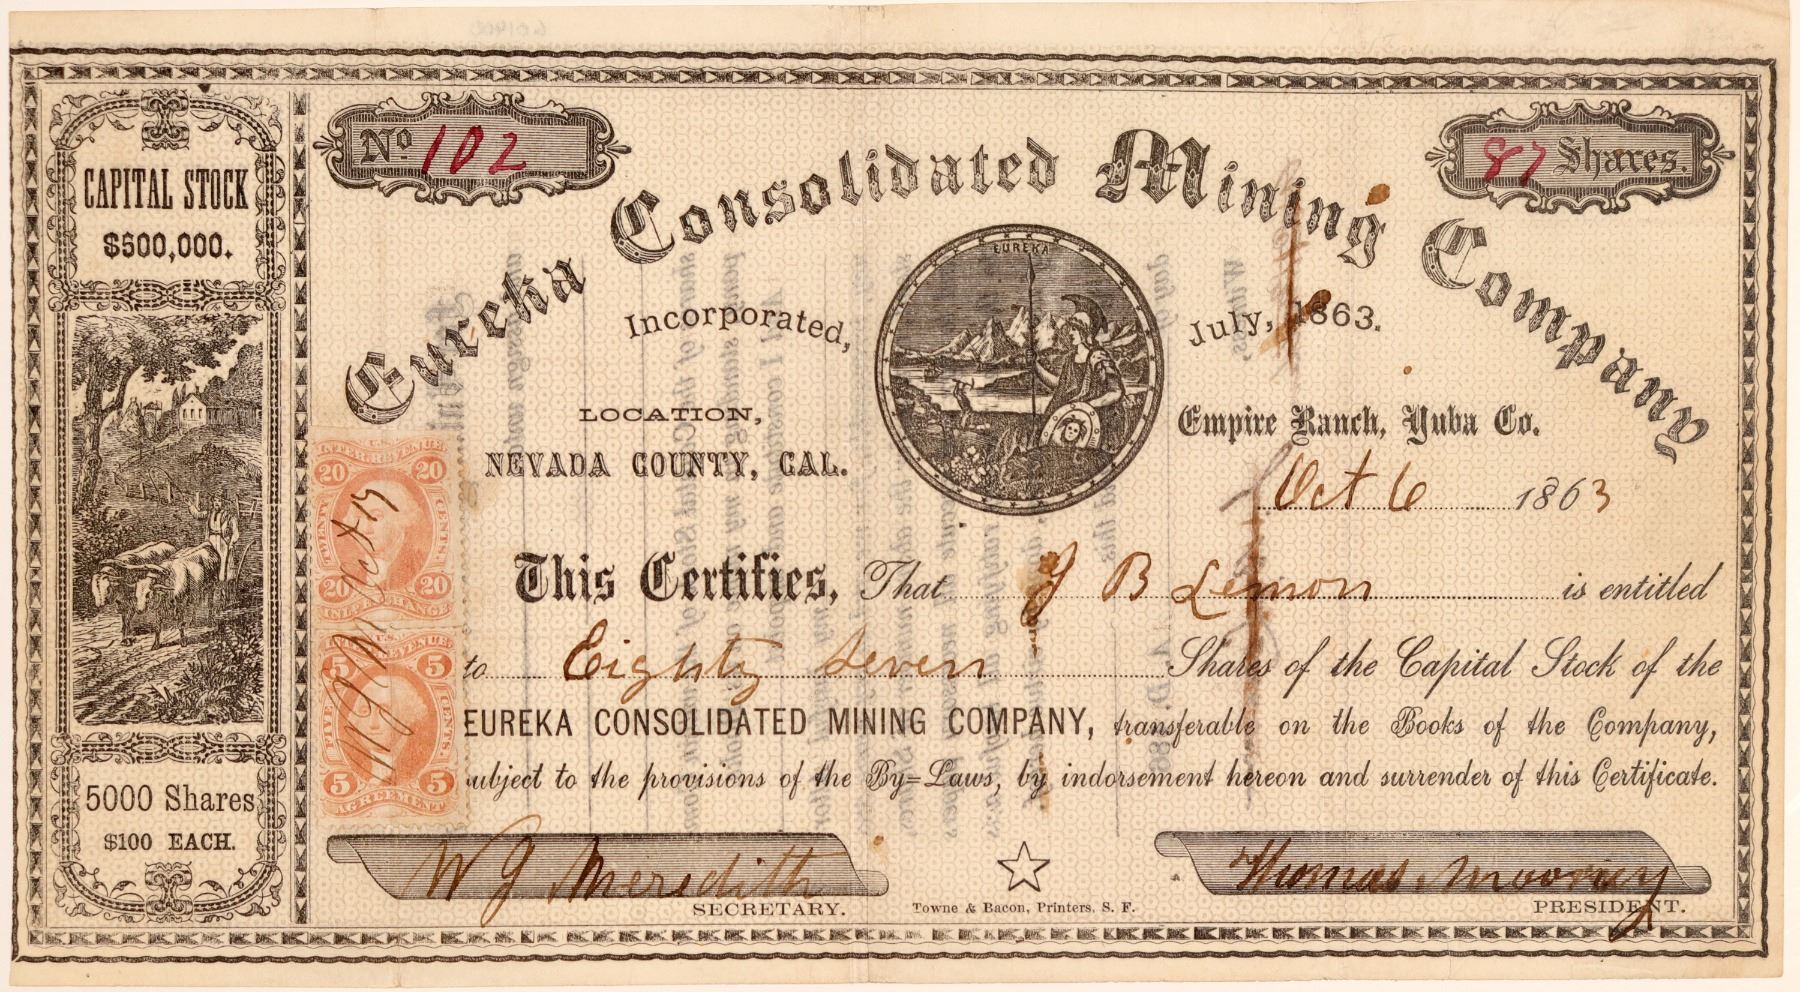 CAPITAL STOCK
$500,000.
5000 Shares
$100 EACH.
No. 102
87 Shares.
Eureka Consolidated Mining Company
Incorporated, July, 1863.
EUREKA
LOCATION,
NEVADA COUNTY, CAL.
Empire Ranch, Yuba Co.
Oct 6 1863
This Certifies, That J B Lemon is entitled
to Eighty Seven Shares of the Capital Stock of the
EUREKA CONSOLIDATED MINING COMPANY, transferable on the Books of the Company,
subject to the provisions of the By=Laws, by indorsement hereon and surrender of this Certificate.
U.S.
INTER. REVENUE.
20 20
TWENTY CENTS.
20 20
INLD EXCHANGE
U.S.
INTER. REVENUE.
5 5
FIVE CENTS.
5 5
AGREEMENT
W J M Oct
W J Meredith
SECRETARY.
Towne & Bacon, Printers, S. F.
Thomas Mooney
PRESIDENT.